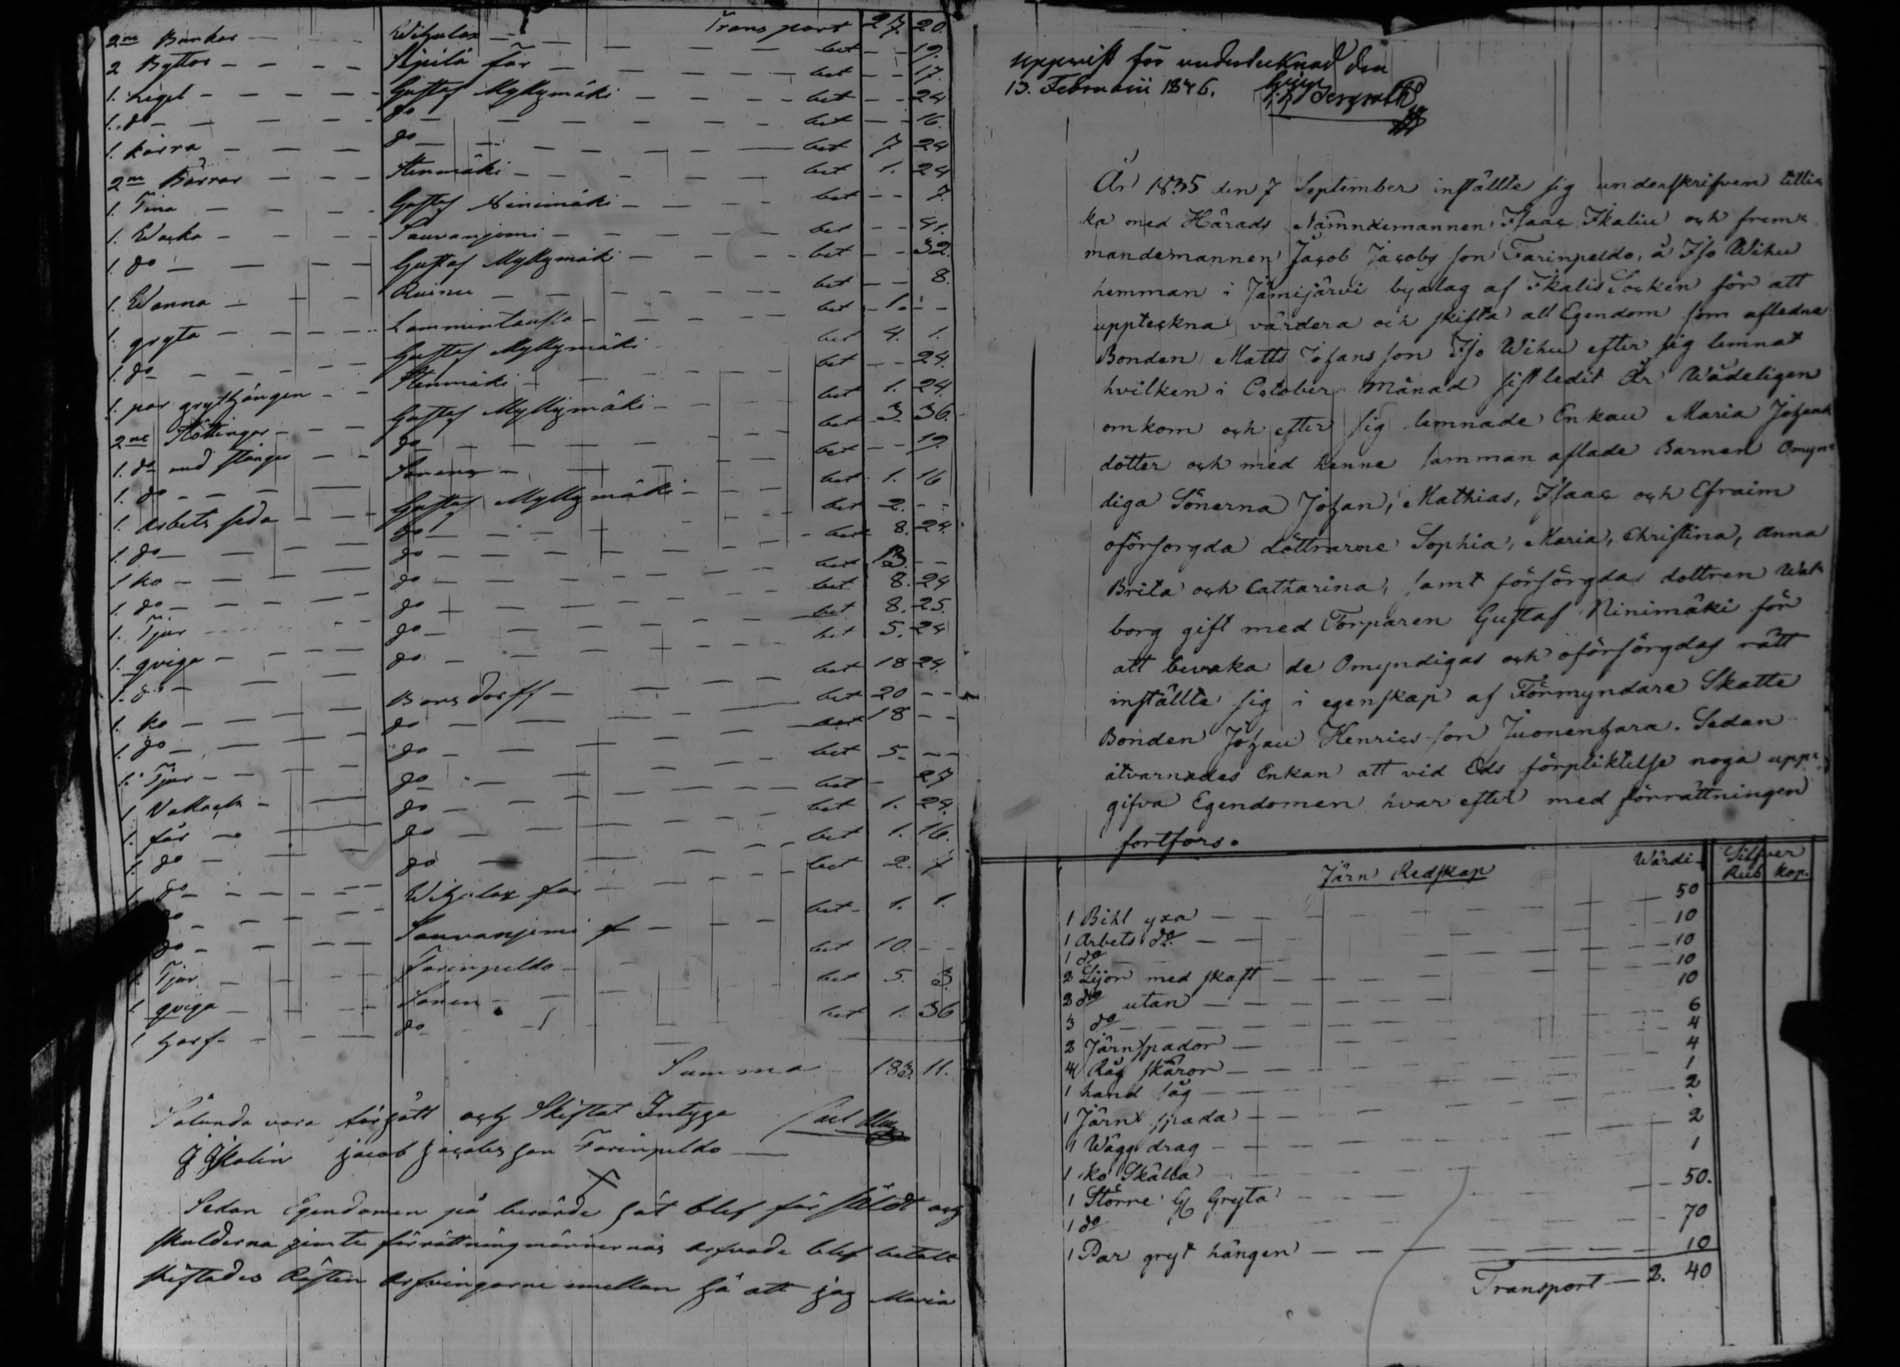 Transport 27. 20.
2ne Bunkar — Wihulax — bet — 19.
2 Byttor — far — bet — 17.
1. — Gustaf Myllymäki — bet — 24
1. do — do — bet — 16.
1. kärra — do — bet 7 24
2ne Kärror — Stenmäki — bet 1. 24
1. Tina — Gustaf Ninimäki — bet — 7.
1. — Sauvanjemi — bet — 41.
1. do — Gustaf Myllymäki — bet — 32.
1. Wanna — Ruinu — bet — 8.
1. gryta — — bet 1. —
1. do — Gustaf Myllymäki — bet 4. 1.
1. par grythängen — Stenmäki — bet — 24.
2ne — Gustaf Myllymäki — bet 1. 24.
1. do med stänger — do — bet 3. 36
1. do — Sonen — bet — 19
1. Arbets — Gustaf Myllymäki — bet 1. 16
1. do — do — bet 2. —
1 ko — do — bet 8. 24.
1. do — do — bet 13. —
1. Tjur — do — bet 8. 24
1. qviga — do — bet 8. 25.
1. do — do — bet 5. 24
1. ko — Bonsdorff — bet 18 24.
1. do — do — bet 20 —
1. Tjur — do — bet 18 —
1 Vallack — do — bet 5. —
1. får — do — bet — 27
1. do — do — bet 1. 24.
do — do — bet 1. 16.
do — Wihulax far — bet 2. 1
do — Sauvanjemi — bet 1. 1.
Tjur — Farinpeldo — bet 10. —
1 qviga — Sonen — bet 5. 3.
1 — do — bet 1. 36
Summa 183. 11.
Sålunda vara förgått och Skiftat Intyga
J Ikalin Jacob Jacobs son Farinpeldo
Sedan Egendomen på berörde sät blef försåldt och
skulderna jemte förrättningsmännernas arfvode blef betalt
skiftades Resten Arfvingarne emellan så att jag Maria
uppvist för undertecknad den
13. Februarii 1846.
År 1835 den 7 September instälte sig underskrifven tillika
ka med Härads Nämndemannen Isaac Ikalin och frem=
mandemannen Jacob Jacobs son Farinpeldo, å Iso Wihu
hemman i Jämijärvi byalag af Ikalis Socken för att
uppteckna, värdera och skifta all Egendom som afledne
Bonden Matts Johans son Iso Wihu efter sig lemnat
hvilken i October Månad sistledit År Wådeligen
omkom och efter sig lemnade Enkan Maria Johans
dotter och med henne samman aflade Barnen Omyn=
diga Sönerna Johan, Mathias, Isaac och Efraim
oförsorgda döttrarne Sophia, Maria, Christina, Anna
Brita och Catharina, samt försörgda dottren Wal=
borg gift med Torparen Gustaf Ninimäki för
att bevaka de Omyndigas och oförsörgdas rätt
inställte sig i egenskap af Förmyndare Skatte
Bonden Johan Henrics son Juonenhara. Sedan
åtvarnades Enkan att vid Eds förpliktelse noga upp=
gifva Egendomen hvar efter med förrättningen
fortfors.
Järn Redskap Wärdi Silfver Rub kop.
1 Bihl yxa — 50
1 Arbets do — 10
1 do — 10
2 Lijor med skaft — 10
3 do utan — 10
3 do — 6
2 Järnspador — 4
4 Råg skäror — 4
1 hand såg — 1
1 Järn spada — 2
1 Wägg drag — 2
1 ko Skälla — 1
1 Större Gryta — 50.
1 do — 70
1 Par gryt hängen — 10
Transport — 2. 40